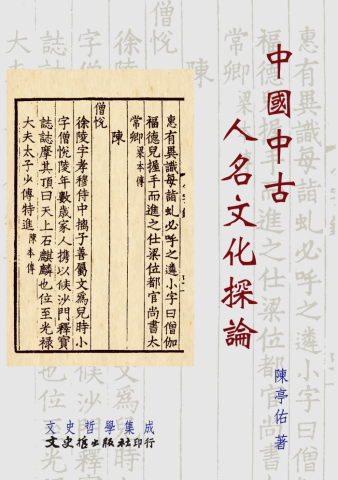 中國中古
人名文化探論
陳亭佑 著
惠有異識母詣虬必呼之遴小字曰僧伽
福德兒握手而進之仕梁位都官尚書太
常卿 梁本傳
陳
僧悅
徐陵字孝穆侍中摛子善屬文為兒時小
字僧悅陵年數歲家人攜以候沙門釋寶
誌誌摩其頂曰天上石麒麟也位至光祿
大夫太子少傅特進 陳本傳
文史哲學集成
文史哲出版社印行